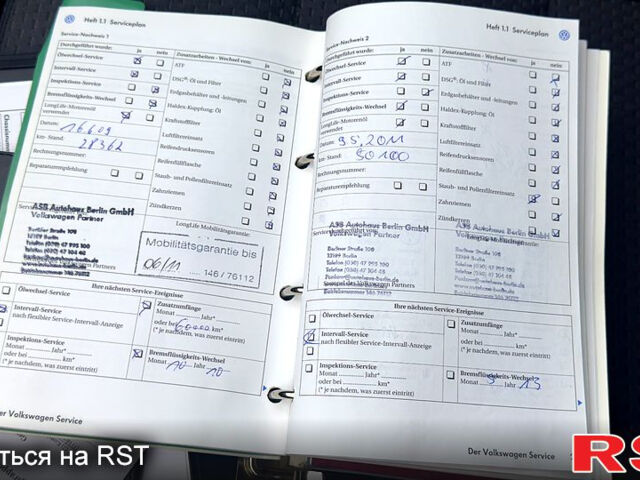 Heft 1.1 Serviceplan
Service-Nachweis 1
Durchgeführt wurde: ja nein
Ölwechsel-Service
Intervall-Service
Inspektions-Service
Bremsflüssigkeits-Wechsel
LongLife-Motorenöl
verwendet
Datum: 16.6.09
km-Stand: 28362
Rechnungsnummer:
Reparaturempfehlung
Zusatzarbeiten - Wechsel von: ja nein
ATF
DSG®: Öl und Filter
Erdgasbehälter und -leitungen
Haldex-Kupplung: Öl
Kraftstofffilter
Luftfiltereinsatz
Reifendrucksensoren
Reifenfüllflasche
Staub- und Pollenfiltereinsatz
Zahnriemen
Zündkerzen
ASB Autohaus Berlin GmbH
Volkswagen Partner
Berliner Straße 108
13189 Berlin
LongLife Mobilitätsgarantie:
Mobilitätsgarantie bis
06/11 146 / 76112
Ihre nächsten Service-Ereignisse
Ölwechsel-Service
Intervall-Service
nach flexibler Service-Intervall-Anzeige
Inspektions-Service
Monat Jahr*
oder bei km*
(* je nachdem, was zuerst eintritt)
Zusatzumfänge
Monat Jahr*
oder bei 60000 km*
(* je nachdem, was zuerst eintritt)
Bremsflüssigkeits-Wechsel
Monat 10 Jahr 10
er Volkswagen Service
Heft 1.1 Serviceplan
Service-Nachweis 2
Durchgeführt wurde: ja nein
Ölwechsel-Service
Intervall-Service
Inspektions-Service
Bremsflüssigkeits-Wechsel
LongLife-Motorenöl
verwendet
Datum: 9.5.2011
km-Stand: 50100
Rechnungsnummer:
Reparaturempfehlung
Zusatzarbeiten - Wechsel von: ja nein
ATF
DSG®: Öl und Filter
Erdgasbehälter und -leitungen
Haldex-Kupplung: Öl
Kraftstofffilter
Luftfiltereinsatz
Reifendrucksensoren
Reifenfüllflasche
Staub- und Pollenfiltereinsatz
Zahnriemen
Zündkerzen
ASB Autohaus Berlin GmbH
Volkswagen Partner
Berliner Straße 108
13189 Berlin
Ihre nächsten Service-Ereignisse
Ölwechsel-Service
Intervall-Service
nach flexibler Service-Intervall-Anzeige
Inspektions-Service
Monat Jahr*
oder bei km*
(* je nachdem, was zuerst eintritt)
Zusatzumfänge
Monat Jahr*
oder bei km*
(* je nachdem, was zuerst eintritt)
Bremsflüssigkeits-Wechsel
Monat 5 Jahr 13
Der Volkswagen Service
ться на RST
RS